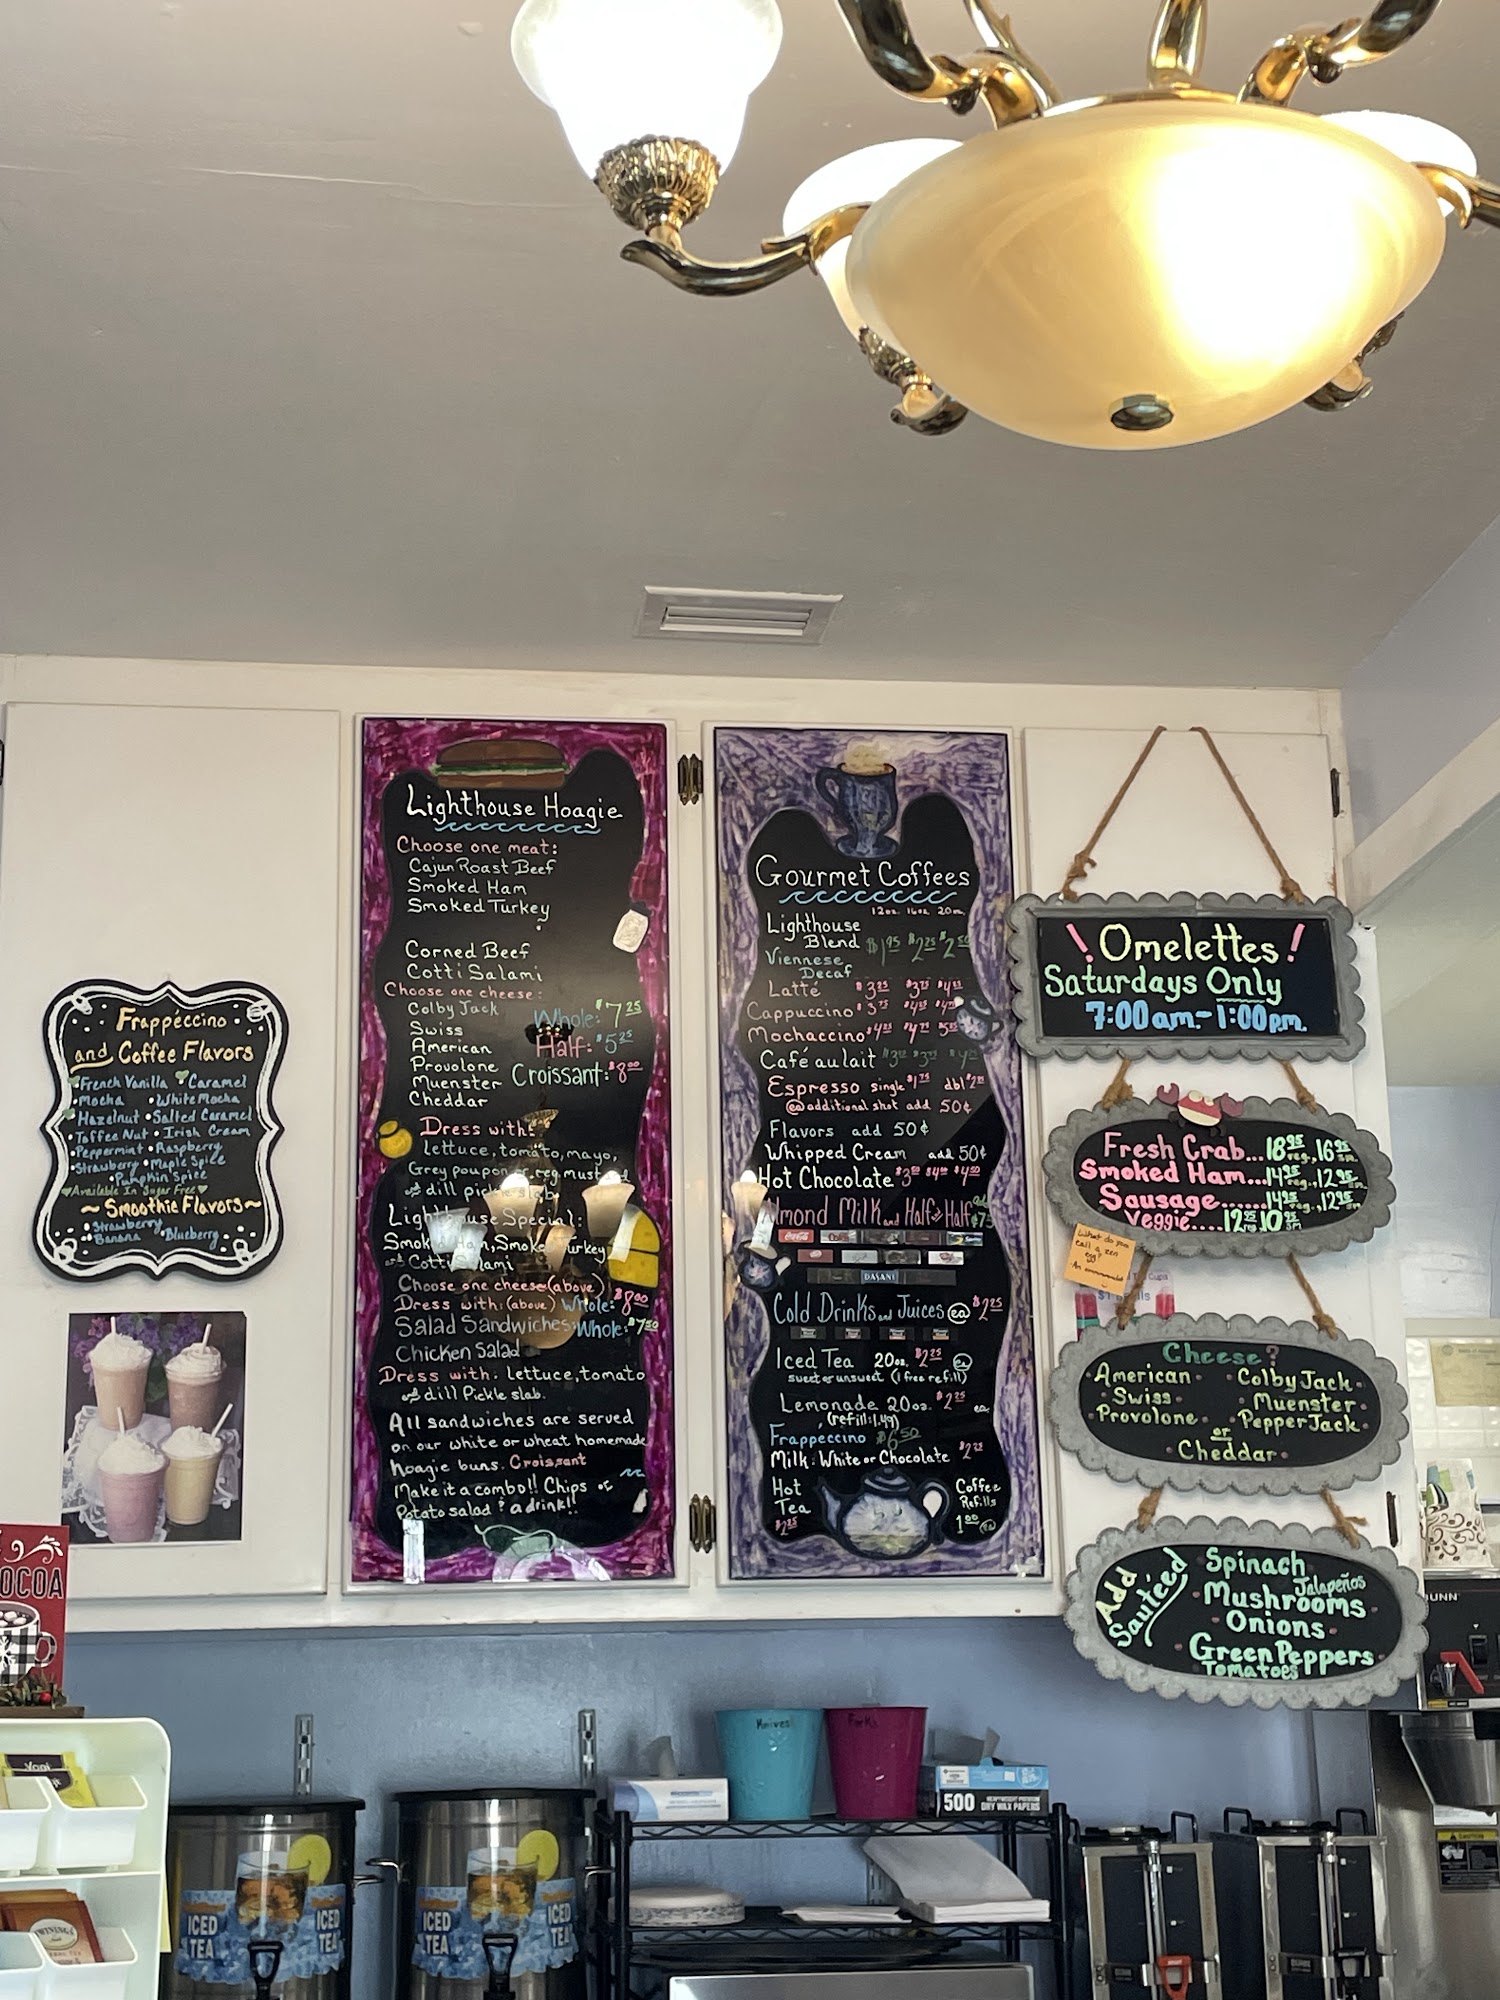 Frappéccino
and Coffee Flavors
French Vanilla • Caramel
• Mocha • White Mocha
Hazelnut • Salted Caramel
• Toffee Nut • Irish Cream
• Peppermint • Raspberry
• Strawberry • Maple Spice
• Pumpkin Spice
Available In Sugar Free
~ Smoothie Flavors ~
• Strawberry
Banana • Blueberry
Lighthouse Hoagie
Choose one meat:
Cajun Roast Beef
Smoked Ham
Smoked Turkey
Corned Beef
Cotti Salami
Choose one cheese:
Colby Jack
Swiss
American
Provolone
Muenster
Cheddar
Whole: $7 25
Half: $5 25
Croissant: $8 00
Dress with:
lettuce, tomato, mayo,
Grey poupon or reg. mustard
and dill pickle slab
Lighthouse Special:
Smoked Ham, Smoked Turkey
and Cotti Salami
Choose one cheese (above)
Dress with: (above) Whole: $8 00
Salad Sandwiches: Whole: $7 50
Chicken Salad
Dress with: lettuce, tomato
and dill Pickle slab.
All sandwiches are served
on our white or wheat homemade
hoagie buns. Croissant
Make it a combo!! Chips or
Potato salad & a drink!!
Gourmet Coffees
12oz. 16oz. 20oz.
Lighthouse
Blend $1 95 $2 25 $2 50
Viennese
Decaf
Latté $3 25 $3 75 $4 25
Cappuccino
Mochaccino
Café au lait
Espresso single $1 75 dbl $2 25
ea additional shot add 50¢
Flavors add 50¢
Whipped Cream add 50¢
Hot Chocolate $3 50 $4 00 $4 50
Almond Milk and Half & Half
DASANI
Cold Drinks and Juices ea $2 25
Iced Tea 20oz. $2 25 ea
sweet or unsweet (1 free refill)
Lemonade 20oz. $2 25 ea.
(refill: 1.49)
Frappeccino $6 50
Milk: White or Chocolate $2 25
Hot
Tea
$2 25
Coffee
Refills
1 00 ea
! Omelettes !
Saturdays Only
7:00am - 1:00pm.
Fresh Crab... 18 95 reg., 16 95 sm.
Smoked Ham... 14 95 reg., 12 95 sm.
Sausage...... 14 95 reg., 12 95 sm.
Veggie.... 12 95 reg. 10 95 sm
What do you
call a zen
egg?
An ommmmelet
Cheese?
American • Colby Jack •
Swiss • Muenster •
Provolone • Pepper Jack •
or
Cheddar •
Add
Sautéed
Spinach
Jalapeños
Mushrooms
Onions
Green Peppers
Tomatoes
OCOA
BUNN
Knives
Forks
500
HEAVYWEIGHT
DRY WAX PAPERS
ICED
TEA
ICED
TEA
ICED
TEA
ICED
TEA
TWININGS
CAUTION